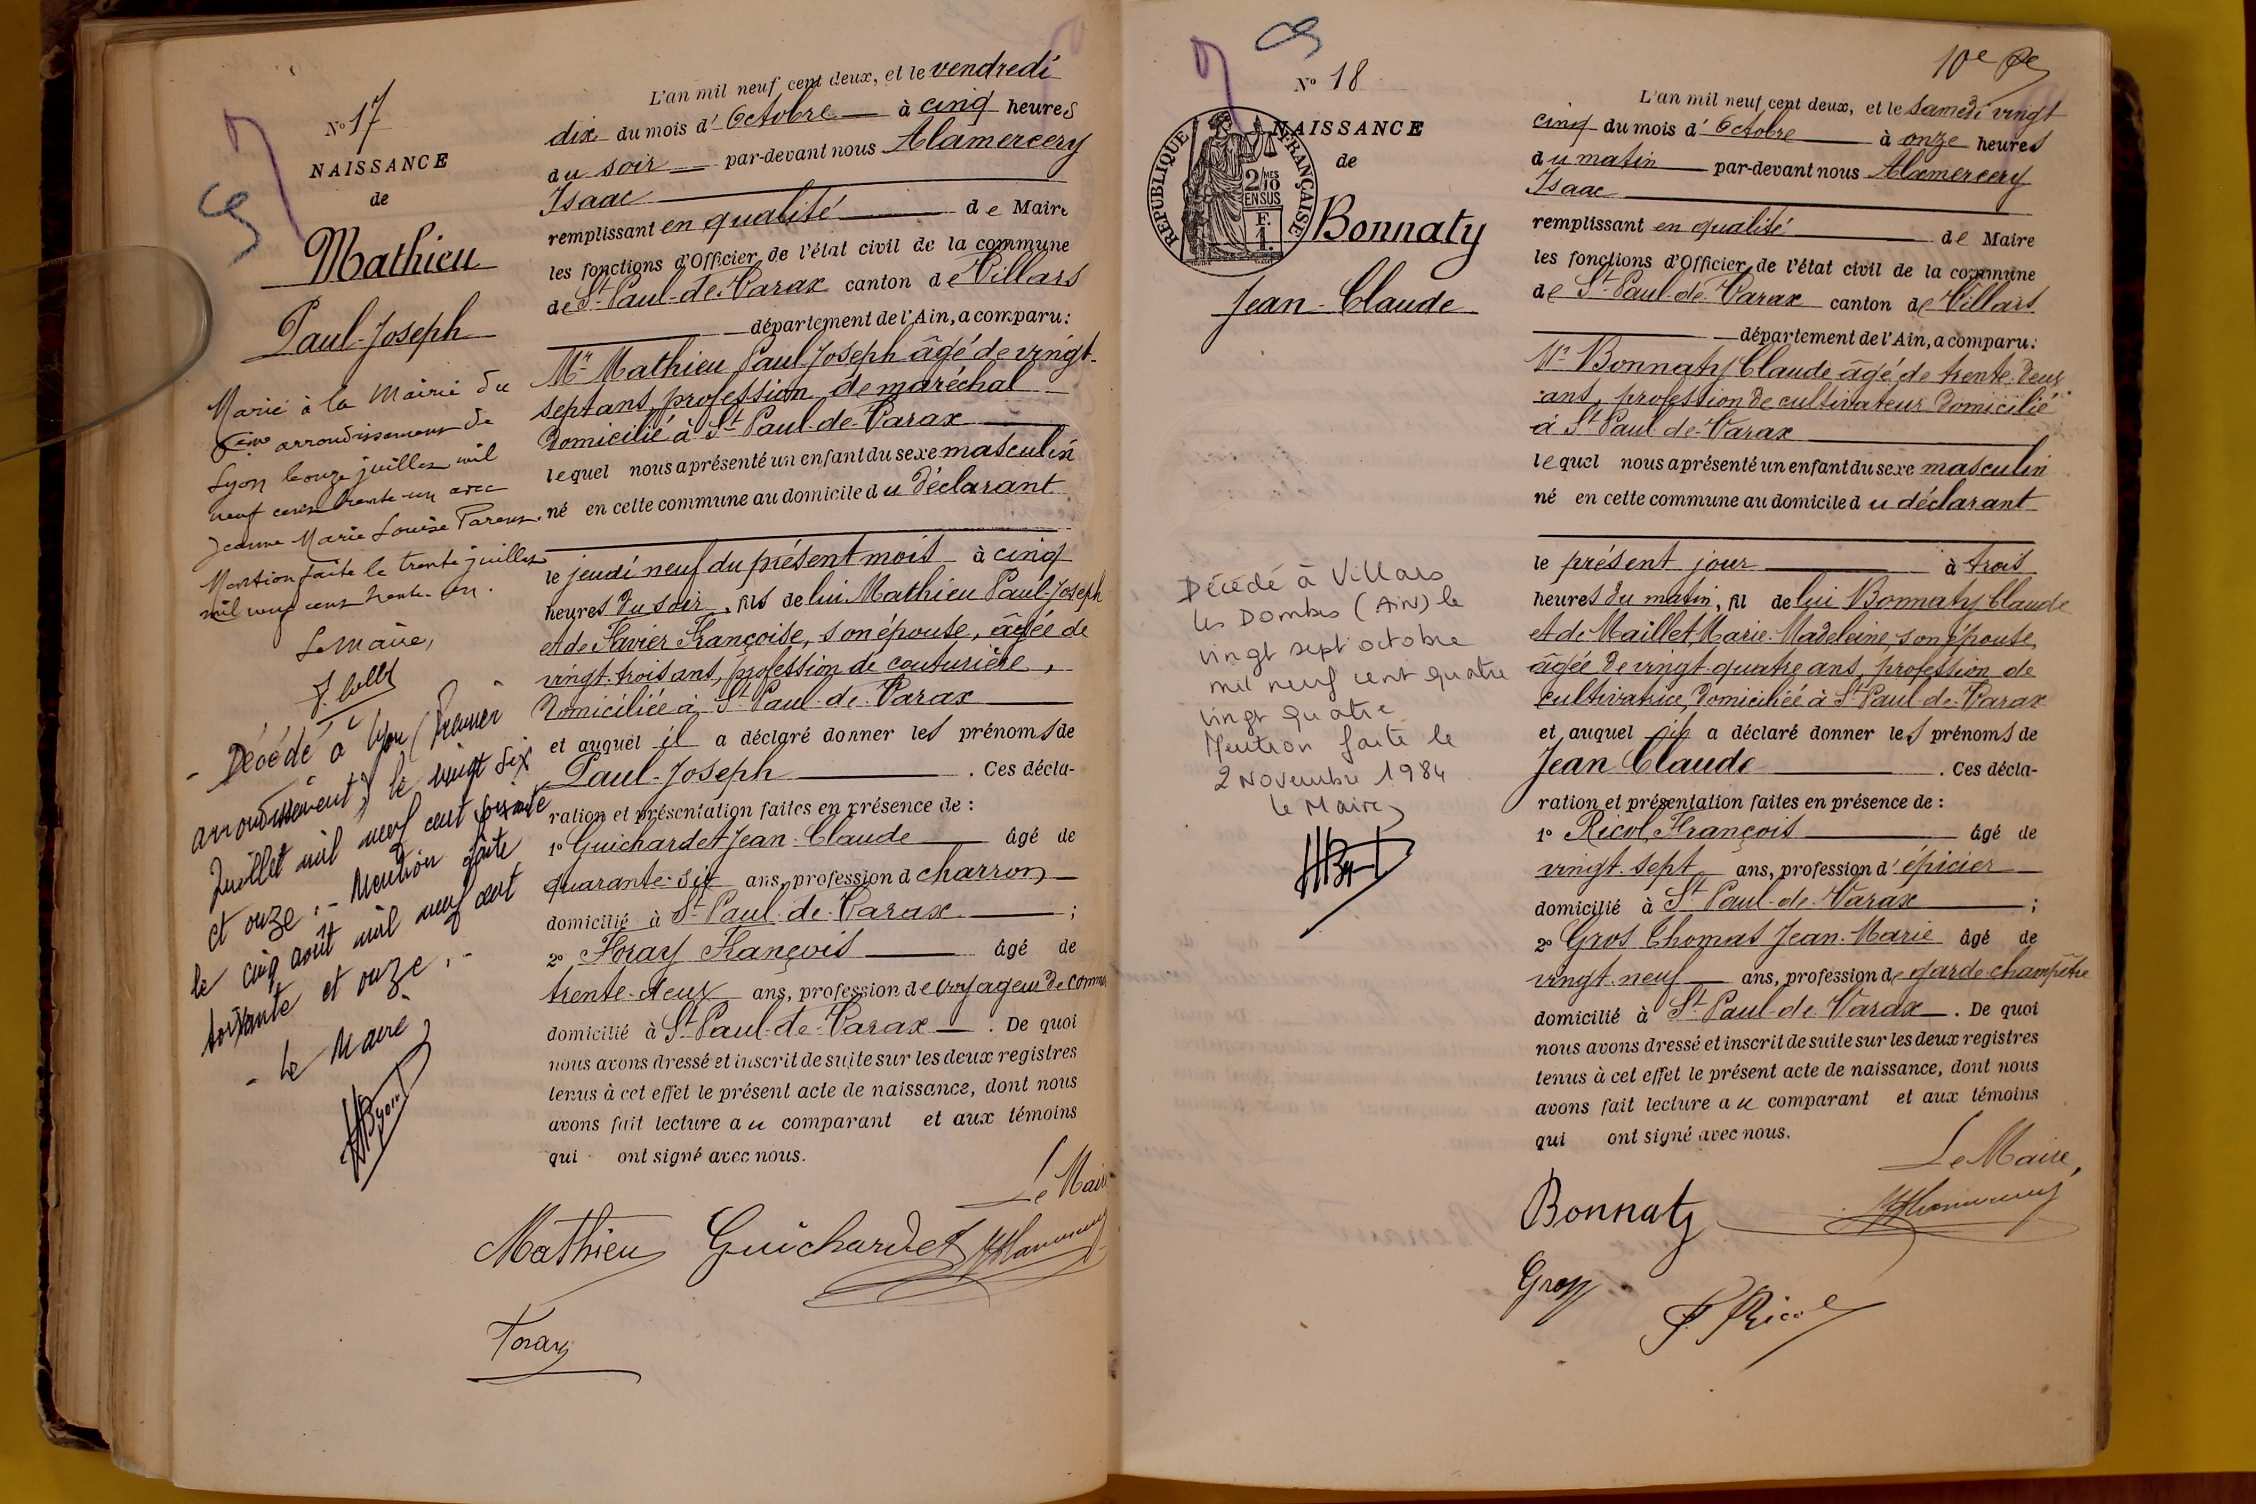 N° 17
NAISSANCE
de
Mathieu
Paul-Joseph
Marié à la Mairie du
6ème arrondissement de
Lyon le onze juillet mil
neuf cent trente-un avec
Jeanne Marie Louise
Mention faite le trente juillet
mil neuf cent trente-un.
Le Maire,
- Décédé à Lyon (Premier
arrondissement) le vingt six
Juillet mil neuf cent soixante
et onze.- Mention faite
le cinq août mil neuf cent
soixante et onze.-
- Le Maire,
L'an mil neuf cent deux, et le vendredi
dix du mois d'Octobre à cinq heures
du soir par-devant nous Alamercery
Isaac
remplissant en qualité de Maire
les fonctions d'Officier de l'état civil de la commune
de St Paul-de-Varax canton de Villars
département de l'Ain, a comparu:
Mr Mathieu Paul-Joseph âgé de vingt-
sept ans, profession de maréchal
domicilié à St Paul-de-Varax
lequel nous a présenté un enfant du sexe masculin
né en cette commune au domicile du déclarant
le jeudi neuf du présent mois à cinq
heures du soir, fils de lui Mathieu Paul-Joseph
et de Favier Françoise, son épouse, âgée de
vingt-trois ans, profession de couturière,
domiciliée à St Paul-de-Varax
et auquel il a déclaré donner les prénoms de
Paul-Joseph. Ces décla-
ration et présentation faites en présence de :
1° Guichardet Jean-Claude âgé de
quarante-six ans, profession d charron
domicilié à St Paul-de-Varax ;
2° Foray François âgé de
trente-deux ans, profession de voyageur de comm
domicilié à St Paul-de-Varax. De quoi
nous avons dressé et inscrit de suite sur les deux registres
tenus à cet effet le présent acte de naissance, dont nous
avons fait lecture au comparant et aux témoins
qui ont signé avec nous.
Le Maire
Mathieu Guichardet
Foray
10e
N° 18
NAISSANCE
de
RÉPUBLIQUE FRANÇAISE
2/10MES
EN SUS
F.
1.
Bonnaty
Jean-Claude
Décédé à Villars
les Dombes (Ain) le
vingt sept octobre
mil neuf cent quatre
vingt quatre
Mention faite le
2 Novembre 1984
le Maire
L'an mil neuf cent deux, et le samedi vingt
cinq du mois d'Octobre à onze heures
du matin par-devant nous Alamercery
Isaac
remplissant en qualité de Maire
les fonctions d'Officier de l'état civil de la commune
de St Paul-de-Varax canton de Villars
département de l'Ain, a comparu:
Mr Bonnaty Claude âgé de trente-deux
ans, profession de cultivateur domicilié
à St Paul-de-Varax
lequel nous a présenté un enfant du sexe masculin
né en cette commune au domicile du déclarant
le présent jour à trois
heures du matin, fil de lui Bonnaty Claude
et de Maillet Marie-Madeleine, son épouse,
âgée de vingt-quatre ans, profession de
cultivatrice, domiciliée à St Paul-de-Varax
et auquel a déclaré donner les prénoms de
Jean Claude. Ces décla-
ration et présentation faites en présence de :
1° Ricol François âgé de
vingt-sept ans, profession d'épicier
domicilié à St Paul-de-Varax ;
2° Gros Thomas Jean-Marie âgé de
vingt-neuf ans, profession de garde-champêtre
domicilié à St Paul-de-Varax. De quoi
nous avons dressé et inscrit de suite sur les deux registres
tenus à cet effet le présent acte de naissance, dont nous
avons fait lecture au comparant et aux témoins
qui ont signé avec nous.
Le Maire,
Bonnaty
Gros
F. Ricol